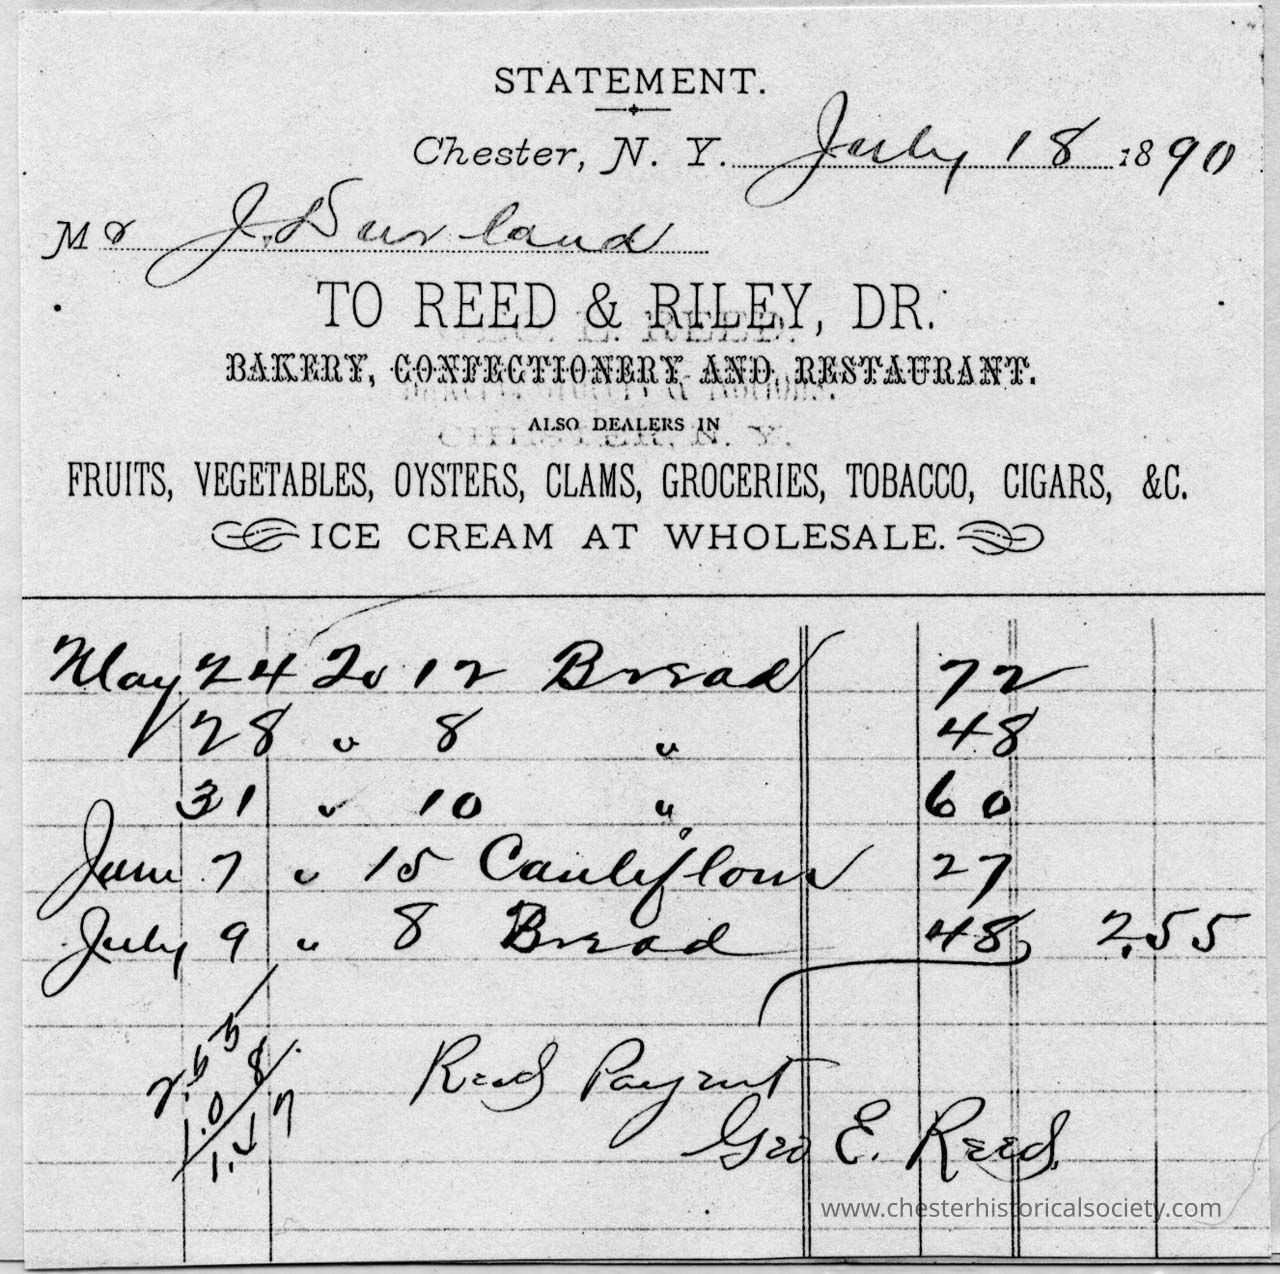 STATEMENT.
Chester, N. Y. July 18 1890
Mr J. Durland
TO REED & RILEY, DR.
GEO. E. REED.
BAKERY, CONFECTIONERY AND RESTAURANT.
ALSO DEALERS IN
CHESTER, N. Y.
FRUITS, VEGETABLES, OYSTERS, CLAMS, GROCERIES, TOBACCO, CIGARS, &C.
ICE CREAM AT WHOLESALE.
May 24 To 12 Bread 72
28 " 8 " 48
31 " 10 " 60
June 7 " 15 Cauliflour 27
July 9 " 8 Bread 48 2.55
2.55
1.08
1.47
Recd Paymt
Geo E. Reed.
www.chesterhistoricalsociety.com